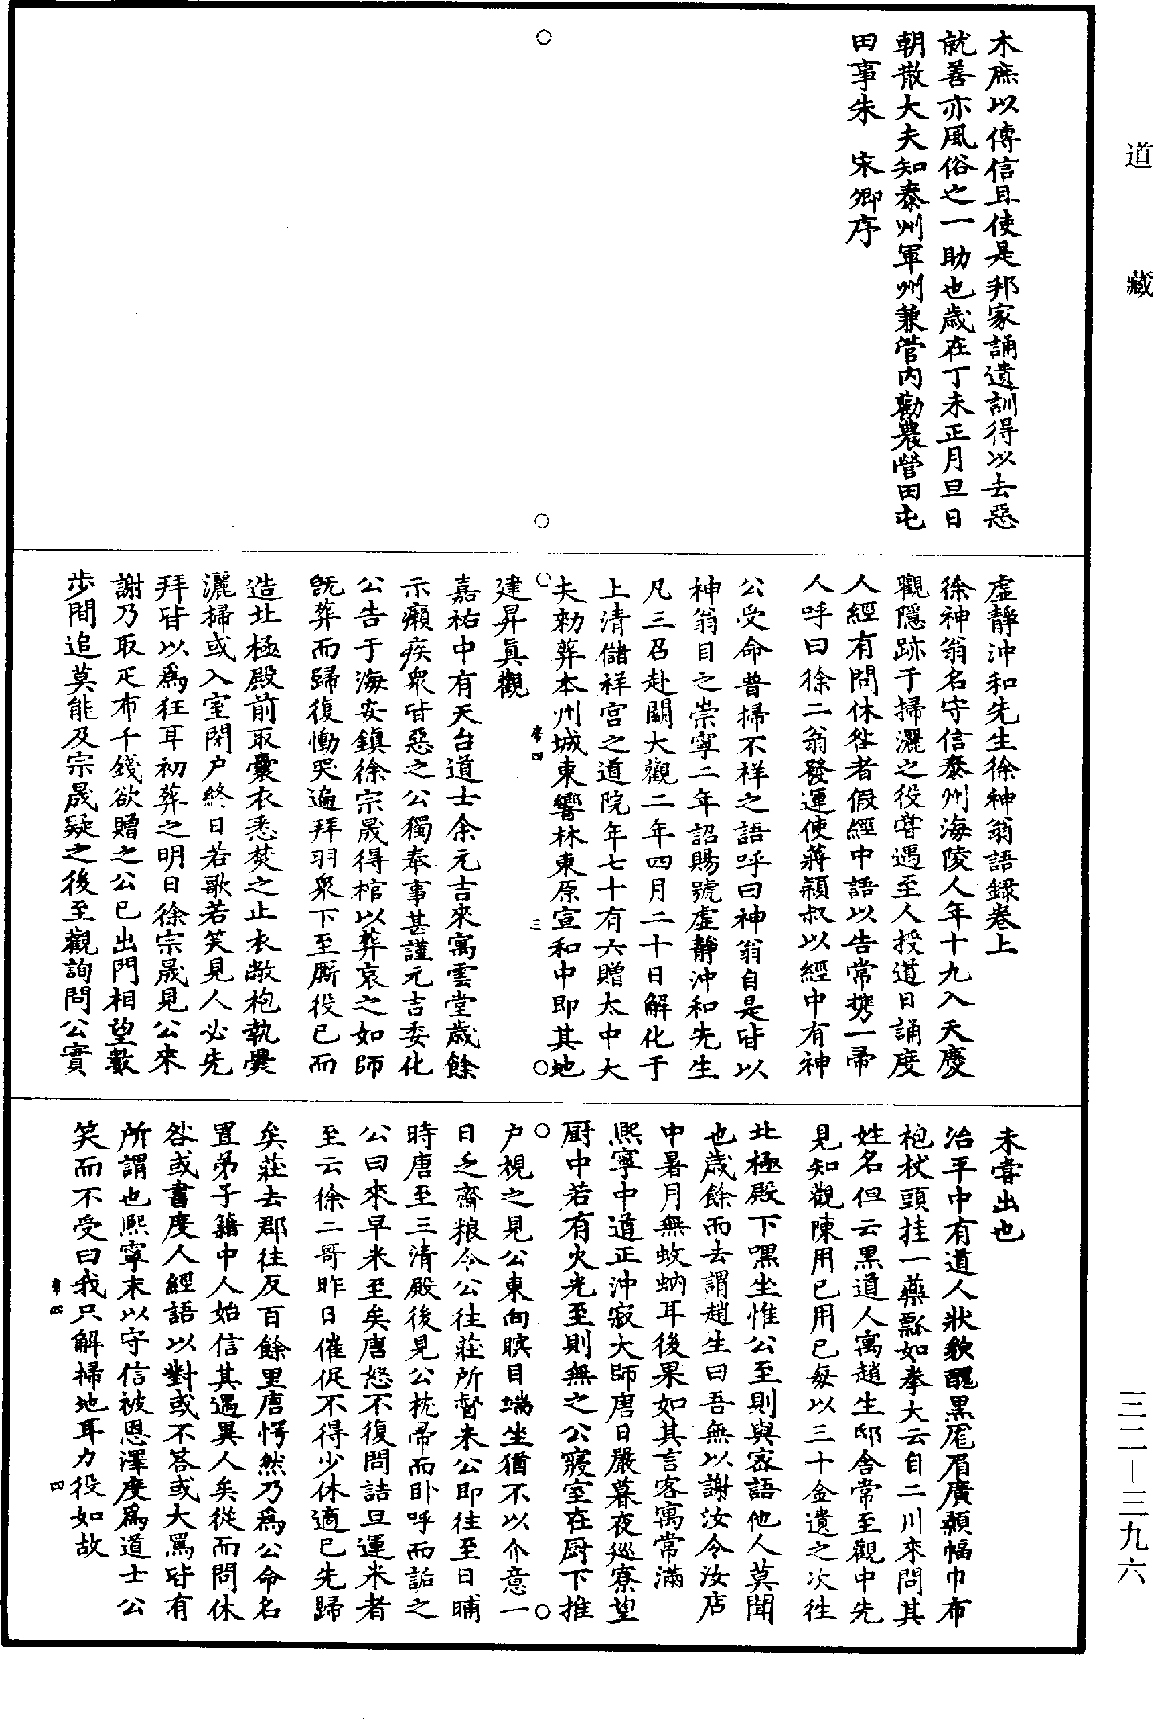 道藏
木庶以傳信且使是邦家誦遺訓得以去惡
就善亦風俗之一助也歲在丁未正月旦日
朝散大夫知泰州軍州兼管內勸農營田屯
田事朱　宋卿序
虛靜沖和先生徐神翁語錄卷上
徐神翁名守信泰州海陵人年十九入天慶
觀隱跡于掃灑之役嘗遇至人授道日誦度
人經有問休咎者假經中語以告常攜一帚
人呼曰徐二翁發運使蔣穎叔以經中有神
公受命普掃不祥之語呼曰神翁自是皆以
神翁目之崇寧二年詔賜號虛靜沖和先生
凡三召赴闕大觀二年四月二十日解化于
上清儲祥宮之道院年七十有六贈太中大
夫勑葬本州城東響林東原宣和中即其地
三
建昇真觀
嘉祐中有天台道士余元吉來寓雲堂歲餘
示癩疾衆皆惡之公獨奉事甚謹元吉委化
公告于海安鎮徐宗晟得棺以葬哀之如師
既葬而歸復慟哭遍拜羽衆下至厮役已而
造北極殿前取囊衣悉焚之止衣敝袍執糞
灑掃或入室閉户終日若歌若笑見人必先
拜皆以爲狂耳初葬之明日徐宗晟見公來
謝乃取疋布千錢欲贈之公已出門相望數
步間追莫能及宗晟疑之後至觀詢問公實
未嘗出也
治平中有道人狀貌醜黑厖眉廣顙幅巾布
袍杖頭挂一藥瓢如拳大云自二川來問其
姓名但云黑道人寓趙生邸舍常至觀中先
見知觀陳用已用已每以三十金遺之次往
北極殿下嘿坐惟公至則與密語他人莫聞
也歲餘而去謂趙生曰吾無以謝汝今汝店
中暑月無蚊蚋耳後果如其言客寓常滿
熙寧中道正沖寂大師唐日嚴暮夜巡寮望
厨中若有火光至則無之公寢室在厨下推
户視之見公東向瞑目端坐猶不以介意一
日乏齋粮令公往莊所督米公即往至日晡
時唐至三清殿後見公枕帚而卧呼而詬之
公曰來早米至矣唐怒不復問詰旦運米者
至云徐二哥昨日催促不得少休適已先歸
矣莊去郡往反百餘里唐愕然乃爲公命名
置弟子籍中人始信其遇異人矣從而問休
咎或書度人經語以對或不答或大罵皆有
所謂也熙寧末以守信被恩澤度爲道士公
笑而不受曰我只解掃地耳力役如故
四
三二－三九六